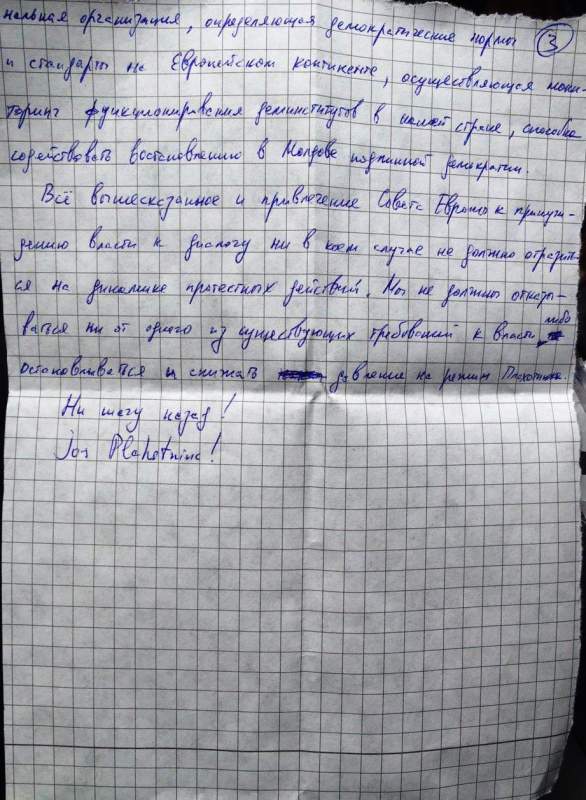 нальная организация, определяющая демократические нормы 3
и стандарты на Европейском континенте, осуществляющая мони-
торинг функционирования деминститутов в нашей стране, способна
содействовать востоновлению в Молдове подлинной демократии.
Всё вышесказанное и привлечение Совета Европы к принуж-
дению власти к диалогу ни в коем случае не должно отразить-
ся на динамике протестных действий. Мы не должны отказы-
ватся ни от одного из существующих требований к власти, либо
остановливатся и снижать давление на режим Плахотнюка.
Ни шагу назад!
Jos Plahotniuc!